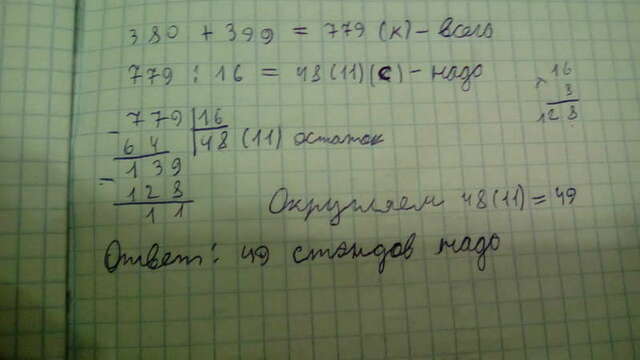 380 + 399 = 779 (к) - всего
779 : 16 = 48 (11) (с) - надо
16
× 8
128
- 779 | 16
64 | 48 (11) остаток
- 139
128
11
Округляем 48 (11) = 49
Ответ: 49 стэндов надо